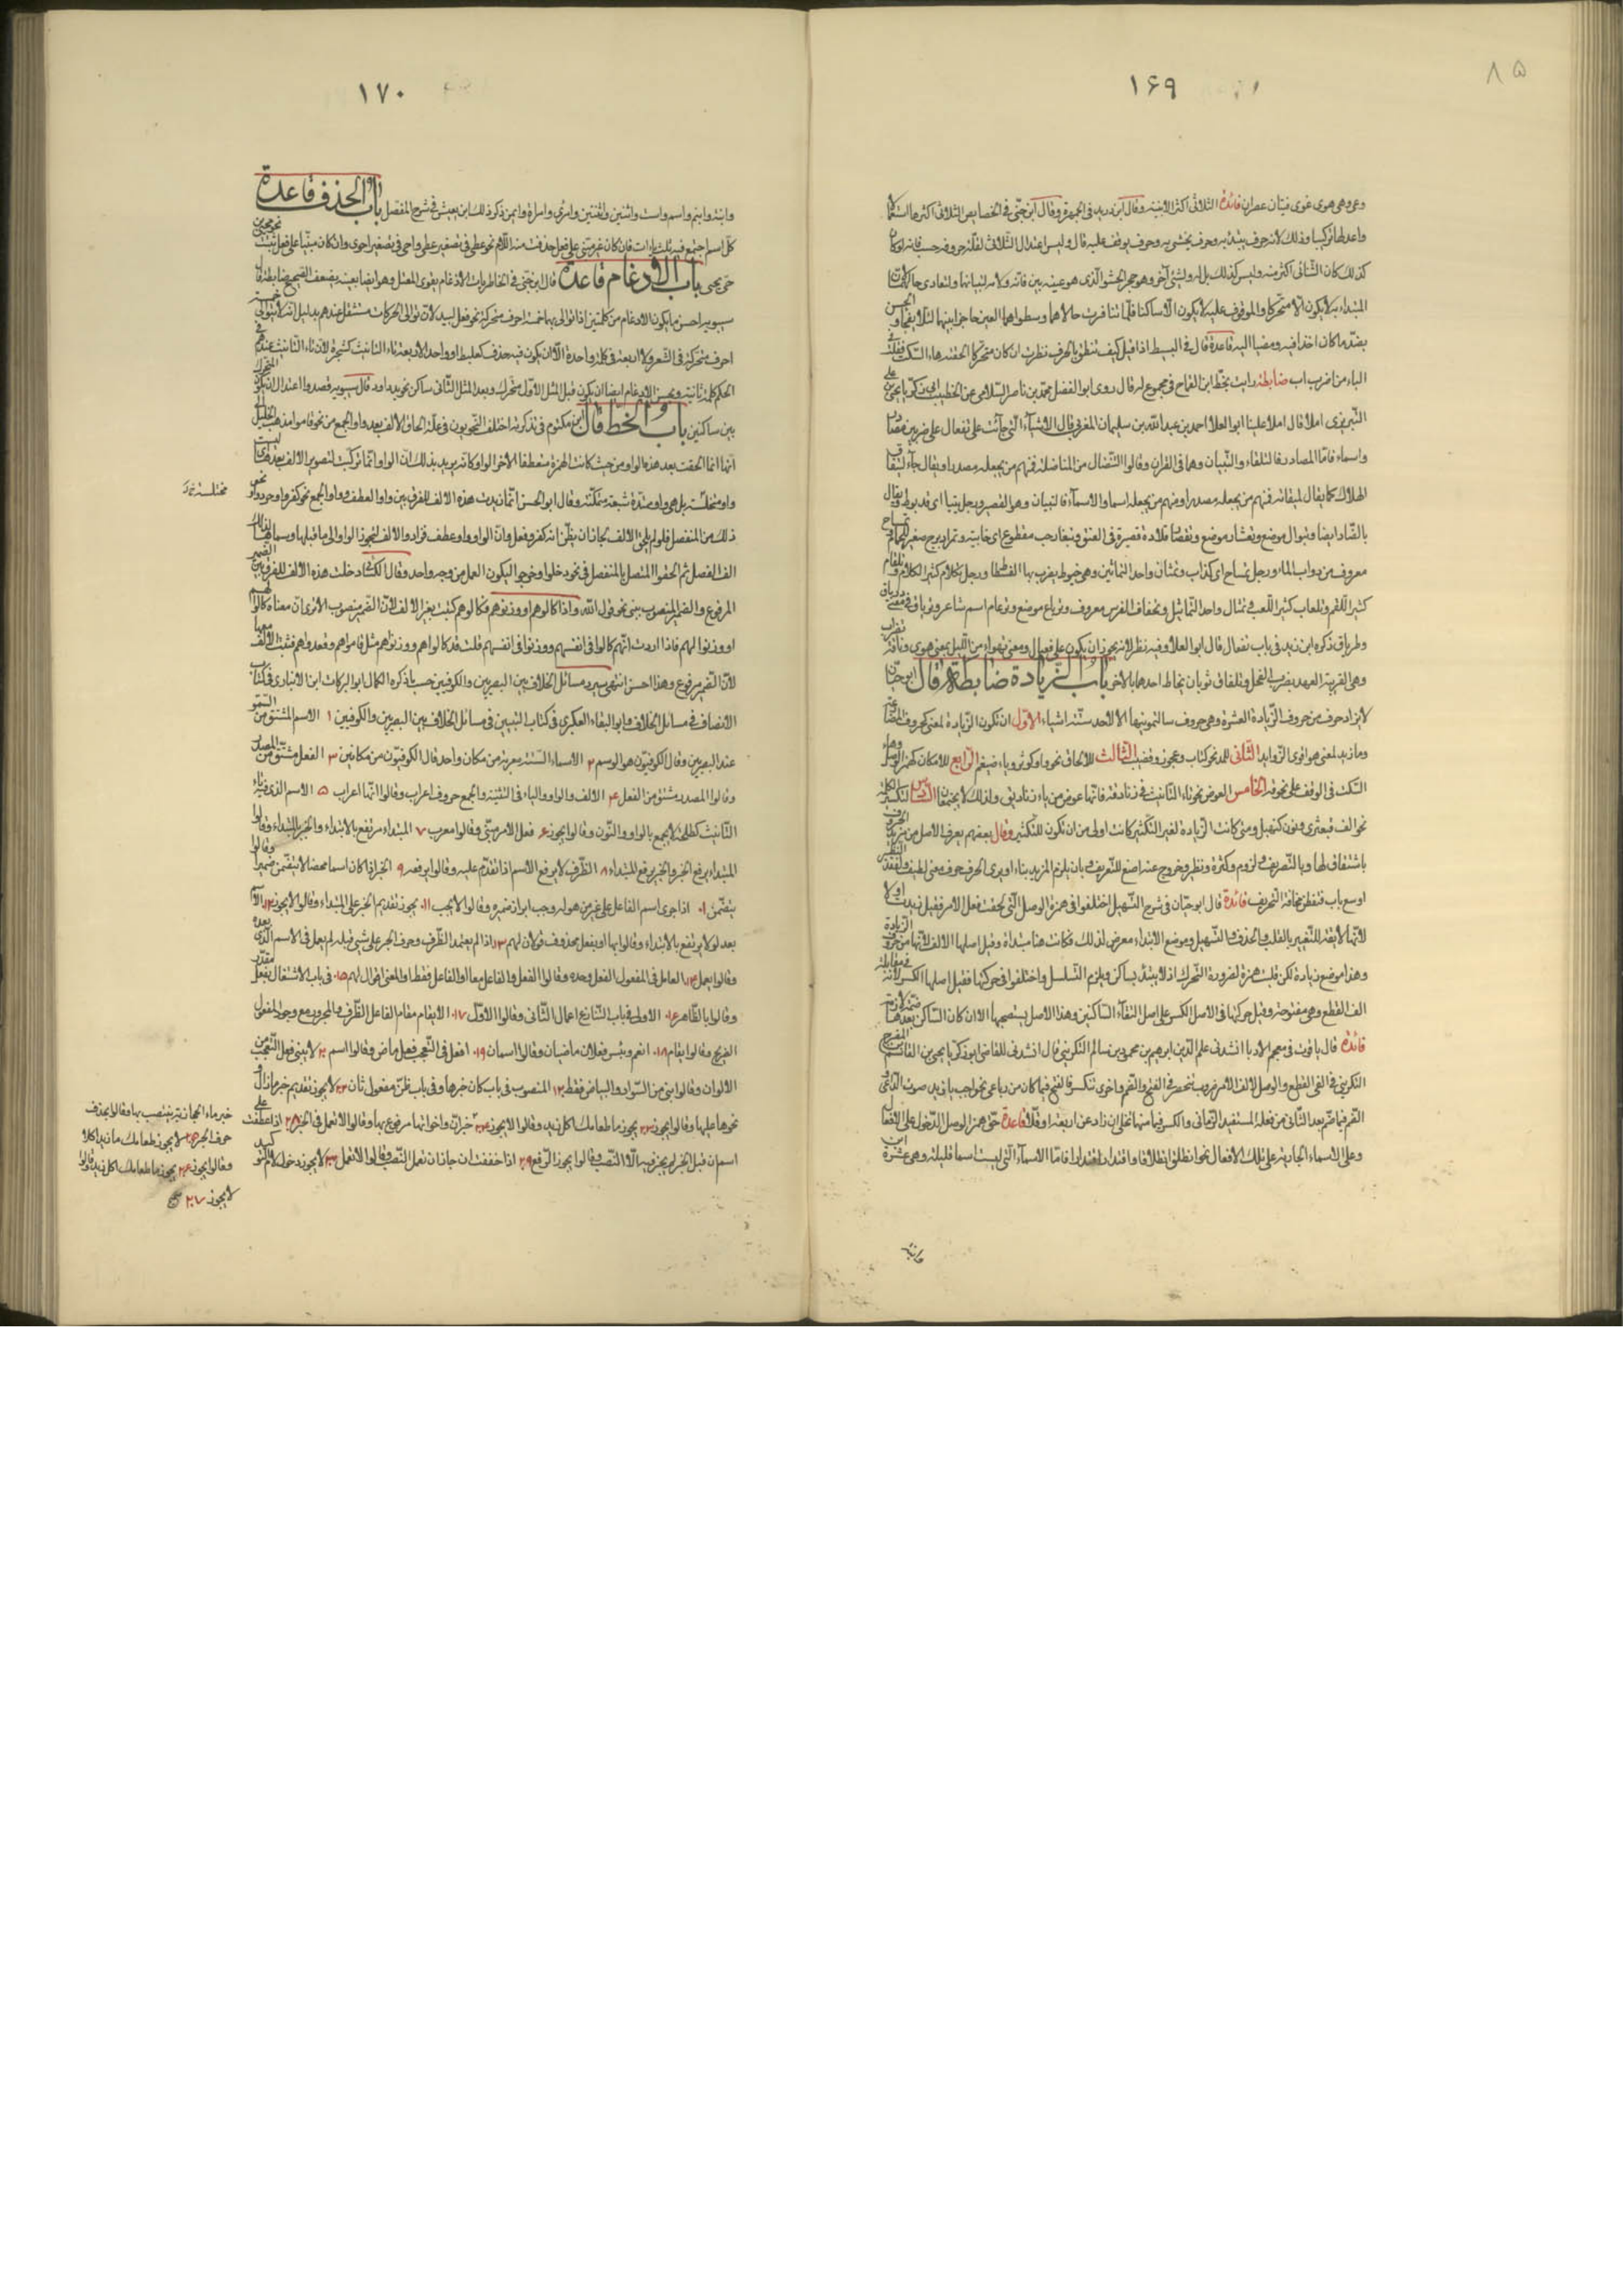 ٨٥
١۶٩
وعمى وهى هوى غوى فتيان عصران فائدة الثلاثى اكثر الابنية وقال ابن دريد فى الجمهرة وقال ابن جنى فى الخصايص الثلاثى اكثرها استعمالا
واعدلها تركيبا وذلك لانه حرف يبتدء به وحرف يحشى به وحرف يوقف عليه قال وليس اعتدال الثلاثى لقلة حروفه حسب فانه لو كان
كذلك كان الثنائى اكثر منه وليس كذلك بل له ولشئ آخر وهو حجز الحشو الذى هو عينه بين فائه ولامه لتباينهما ولتعادى حاليهما لان
المبتداء به لا يكون الا متحركا والموقوف عليه لا يكون الا ساكنا فلما تنافرت حالاهما وسطوا العين حاجزا بينهما لئلا يفجاوا الحس
بضد ما كان اخذا فيه ومضبا اليه قاعدة قال فى البسيط اذا قيل كيف تنطق بالحرف نظرت ان كان متحركا الحقته هاء السكت فقلت فى
الباء من اضرب اب ضابطة رايت بخط ابن القماح فى مجموع له قال روى ابو الفضل محمد بن ناصر السلامى عن الخطيب ابى زكريا يحيى بن على
التبريزى املاء قال املا علينا ابو العلا احمد بن عبد الله بن سليمان المغربى قال الاشياء التى جائت على تفعال على ضربين مصادر
واسماء فاما المصادر فالتلقاء والتبيان وهما فى القران وقالوا التنضال من المناضلة فمنهم من يجعله مصدرا ويقال جاء لتيفاق
الهلاك كما يقال لميقاته فمنهم من يجعله مصدرا ومنهم من يجعله اسما والاسماء فالتبيان وهو القصير ورجل تيتاء اى عذيوط ويقال
بالضاد ايضا وتبوال موضع وتعشار موضع وتقصار قلادة قصيرة فى العنق وتيغار حب مقطوع اى خابية وتمراد برج صغير للحمام وتمساح
معروف من دواب الماء ورجل تمساح اى كذاب وتمتان واحد التماتين وهى خيوط يضرب بها الفسطاط ورجل تكلام كثير الكلام وتلقام
كثير اللقم وتلعاب كثير اللعب وتمثال واحد التماثيل وتجفاف الفرس معروف وترباع موضع وترعام اسم شاعر وترياق فى معنى درياق
وطرياق ذكره ابن دريد فى باب تفعال قال ابو العلا وفيه نظر لانه يجوز ان يكون على فعيال ومضى تهواء من الليل بمعنى هوى وناقة تضراب
وهى القريبة العهد بضرب الفحل وتلفاق ثوبان يخاط احدهما بالاخر باب الزيادة ضابطة قال ابو حيان
لا يزاد حرف من حروف الزيادة العشرة وهى حروف سالتمونيها الا لاحد ستة اشياء الاول ان تكون الزيادة لمعنى كحروف المضارعة
وما زيد لمعنى هو اقوى الزوايد الثانى للمد نحو كتاب وعجوز وقضيب الثالث للالحاق نحو واو كوثر وياء ضيغم الرابع للامكان كهمزة الوصل وهاء
السكت فى الوقف على نحو قه الخامس العوض نحو تاء التانيث فى زنادقة فانها عوض من ياء زناديق ولذلك لا يجتمعان السادس لتكثير الكلمة
نحو الف قبعثرى ونون كنهبل ومتى كانت الزيادة لغير التكثير كانت اولى من ان تكون للتكثير وقال بعضهم يعرف الاصل من مزيد الحروف
باشتقاق لها وبالتصريف ولزوم وكثرة ونظير وخروج عنه اصغ للتعريف وبان يلزم المزيد بناء او يرى الحرف حرف معنى لطيف ولفقد النظير
اوسع باب فتفطن مخافة التحريف فائدة قال ابو حيان فى شرح التسهيل اختلفوا فى همزة الوصل التى لحقت فعل الامر فقيل زيدت اولا
لانها لا يقدر التغيير بالقلب والحذف والتسهيل وموضع الابتداء معرض لذلك فكانت هنا مبتداة وقيل اصلها الالف لانها من حروف الزيادة
وهذا موضع زيادة لكن قلبت همزة لضرورة التحرك اذ لا يبتدء بساكن ويلزم التسلسل واختلفوا فى حركتها فقيل اصلها الكسر لانه فى مقابلة
الف القطع وهى مفتوحة وقيل حركتها فى الاصل الكسر على اصل التقاء الساكنين وهذا الاصل يستصحبها الا ان كان الساكن بعدها ضمة لازمة
فائدة قال ياقوت فى معجم الادبا انشدنى علم الدين ابرهيم بن محمود بن سالم التكريتى قال انشدنى للقاضى ابو زكريا يحيى بن القاسم بن المفرج
التكريتى فى الفى القطع والوصل لالف الامر ضروب تنحصر فى الفتح والضم واخرى تنكسر فالفتح فيما كان من رباعى نحو اجب يا زيد صوت الداعى
الضم فيما ضم بعد الثانى من فعله المستقبل الزمانى والكسر فيما منهما تخلى ان زاد عن اربعة او قلا قاعدة حق همزة الوصل الدخول على الافعال
وعلى الاسماء الجارية على تلك الافعال نحو انطلق انطلاقا واقتدر اقتدارا فاما الاسماء التى ليست اسما قليلة وهى عشرة ابن
وابنة
١٧٠
وابنة وابنم واسم واست واثنين واثنتين وامرئ وامراة وايمن ذكر ذلك ابن يعيش فى شرح المفصل باب الحذف قاعدة
كل اسم اجتمع فيه ثلث يا‌ءات فان كان غير مبنى على فعل حذفت منه اللام نحو عطى فى تصغير عطى واحى فى تصغير احوى وان كان مبنيا على فعل ثبتت نحو محيى
حى يحيى باب الادغام قاعدة قال ابن جنى فى الخاطريات الادغام يقوى المعتل وهو ايضا بعينه يضعف الصحيح ضابطة قال
سيبويه احسن ما يكون الادغام من كلمتين اذا توالى بهما خمسة احرف متحركة نحو فعل لبيد لان توالى الحركات مستثقل عندهم بدليل انه لا يتوالى خمسة
احرف متحركة فى الشعر ولا اربعة فى كلمة واحدة الا ان يكون فيه حذف كعلبط او واحد الاربعة تاء التانيث كشجرة لان تاء التانيث عندهم فى
الحكم كلمة ثانية ويحسن الادغام ايضا ان يكون قبل المثل الاول متحرك وبعد المثل الثانى ساكن نحو يد داود قال سيبويه قصدوا اعتدال ان يكون المتحرك
بين ساكنين باب الخط قال ابن مكتوم فى تذكرته اختلف النحويون فى علة الحاق الالف بعد واو الجمع من نحو قاموا فذهب الخليل
انها انما الحقت بعد هذه الواو من حيث كانت الهمزة منقطعا لاخر الواو كانه يريد بذلك ان الواو انما تركبت لتصوير الالف بعدها اى ليست
واو مختلسة بل هى واو ممتدة مشبعة متمكنة وقال ابو الحسن انما زيدت هذه الالف للفرق بين واو العطف وواو الجمع نحو كفروا وجردوا نحو
مختلسة
ذلك من المنفصل فلو لم يلحق الالف لجاز ان يظن انه كفر وفعل وان الواو واو عطف فزادوا الالف لتحوز الواو الى ما قبلها وسماها لذلك
الف الفصل ثم الحقوا المتصل بالمنفصل فى نحو دخلوا وخرجوا ليكون العمل من وجه واحد وقال الكسائى دخلت هذه الالف للفرق بين الضمير
المرفوع والضمير المنصوب بنى نحو قول الله واذا كالوهم او وزنوهم فكالوهم كتبت بغير الالف لان الضمير منصوب الا ترى ان معناه كالوا لهم
او وزنوا لهم فاذا اردت انهم كالوا فى انفسهم ووزنوا فى انفسهم قلت قد كالوا هم ووزنوا هم مثل قاموا هم وقعدوا هم فتثبت الالف معها
لان الضمير مرفوع وهذا احسن انتهى سرد مسائل الخلاف بين البصريين والكوفيين حسب ما ذكره الكمال ابو البركات ابن الانبارى فى كتاب
الانصاف فى مسائل الخلاف وابو البقاء العكبرى فى كتاب التبيين فى مسائل الخلاف بين البصريين والكوفيين ١ الاسم المشتق من السمو
عند البصريين وقال الكوفيون هو الوسم ٢ الاسماء الستة معربة من مكان واحد قال الكوفيون من مكانين ٣ الفعل مشتق من المصدر
وقالوا المصدر مشتق من الفعل ۴ الالف والواو والياء فى التثنية والجمع حروف اعراب وقالوا انها اعراب ۵ الاسم الذى فيه تاء
التانيث كطلحة لا يجمع بالواو والنون وقالوا يجوز ۶ فعل الامر مبنى وقالوا معرب ٧ المبتداء مرتفع بالابتداء والخبر بالمبتداء وقالوا
المبتداء يرفع الخبر والخبر يرفع المبتداء ٨ الظرف لا يرفع الاسم اذا تقدم عليه وقالوا يرفعه ٩ الخبر اذا كان اسما محضا لا يتضمن ضميرا وقالوا
يتضمن ١٠ اذا جرى اسم الفاعل على غير من هو له وجب ابراز ضميره وقالوا لا يجب ١١ يجوز تقديم الخبر على المبتداء وقالوا لا يجوز ١٢ الاسم
بعد لولا يرتفع بالابتداء وقالوا بها او بفعل محذوف قولان لهم ١٣ اذا لم يعتمد الظرف وحرف الجر على شئ قبله لم يعمل فى الاسم الذى بعده
وقالوا يعمل ١۴ العامل فى المفعول الفعل وحده وقالوا الفعل والفاعل معا او الفاعل فقط او المعنى اقوال لهم ١۵ فى باب الاشتغال بفعل مقدر
وقالوا بالظاهر ١۶ الاولى فى باب التنازع اعمال الثانى وقالوا الاول ١٧ لا يقام مقام الفاعل الظرف والمجرور مع وجود المفعول
الصريح وقالوا يقام ١٨ نعم وبئس فعلان ماضيان وقالوا اسمان ١٩ افعل فى التعجب فعل ماض وقالوا اسم ٢٠ لا يبنى فعل التعجب من
الالوان وقالوا يبنى من السواد والبياض فقط ٢١ المنصوب فى باب كان خبرها وفى باب ظن مفعول ثان ٢٢ لا يجوز تقديم خبر ما زال و
نحوها عليها وقالوا يجوز ٢٣ يجوز ما طعامك اكل زيد وقالوا لا يجوز ٢۴ خبر ان واخواتها مرفوع بها وقالوا لا تعمل فى الخبر ٢٨ اذا عطفت على
اسم ان قبل الخبر لم يجز فيه الا النصب وقالوا يجوز الرفع ٢٩ اذا خففت ان جاز ان تعمل النصب وقالوا لا تعمل ٣٠ لا يجوز دخول لام التوكيد
خبر ماء الحجازية ينتصب بها وقالوا بحذف
حرف الجر ٢۵ لا يجوز طعامك ما زيد اكلا
وقالوا يجوز ٢۶ يجوز ما طعامك اكل زيد وقالوا
لا يجوز ٢٧ صح